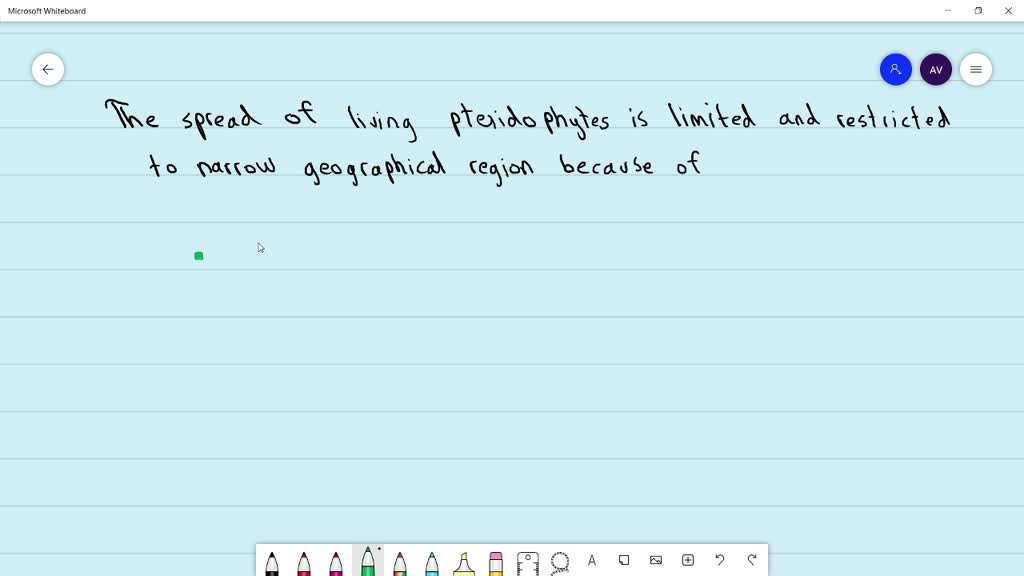 Microsoft Whiteboard
AV
The spread of living pteridophytes is limited and restricted
to narrow geographical region because of
A